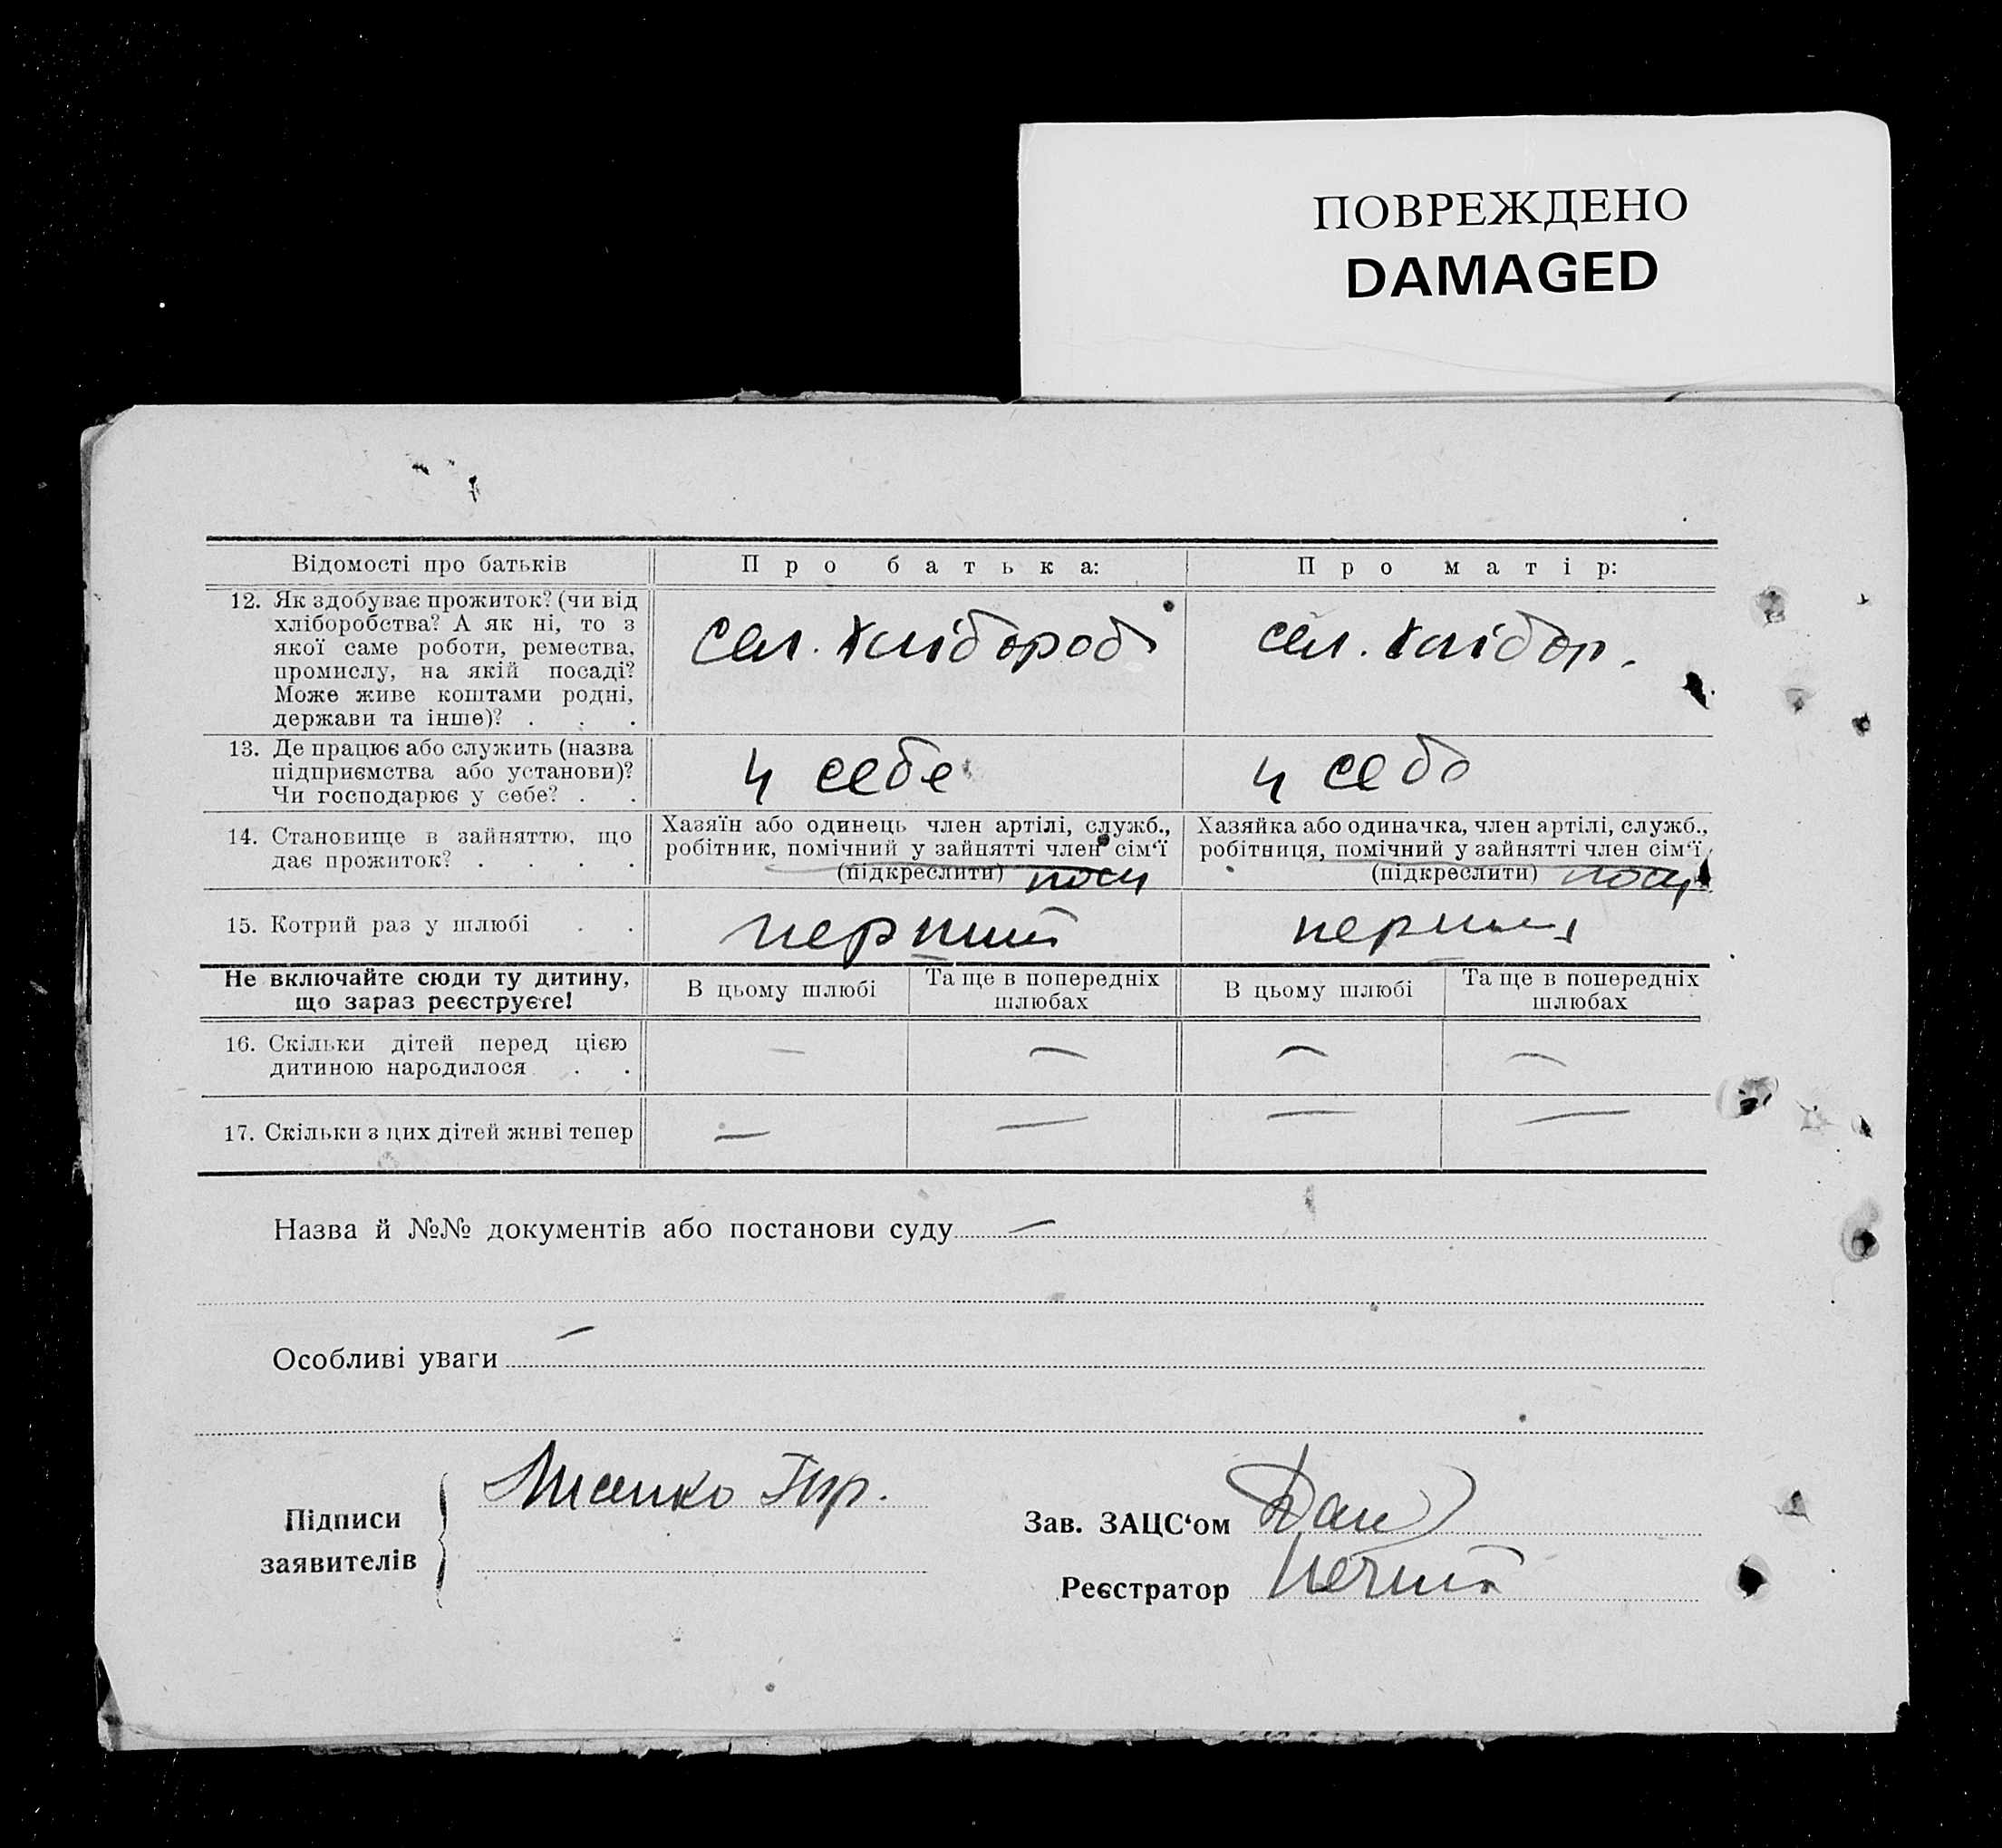 ПОВРЕЖДЕНО
DAMAGED
Відомості про батьків
Про батька:
Про матір:
12. Як здобуває прожиток? (чи від
хліборобства? А як ні, то з
якої саме роботи, ремества,
промислу, на якій посаді?
Може живе коштами родні,
держави та інше)? . . .
Сел. хлібороб
сел. хлібор.
13. Де працює або служить (назва
підприємства або установи)?
Чи господарює у себе? . .
у себе
у себе
14. Становище в зайняттю, що
дає прожиток? . . . .
Хазяїн або одинець член артілі, служб.,
робітник, помічний у зайнятті член сім‘ї
(підкреслити)
Хазяйка або одиначка, член артілі, служб.,
робітниця, помічний у зайнятті член сім‘ї
(підкреслити)
15. Котрий раз у шлюбі . .
перший
перший
Не включайте сюди ту дитину,
що зараз реєструєте!
В цьому шлюбі
Та ще в попередніх
шлюбах
В цьому шлюбі
Та ще в попередніх
шлюбах
16. Скільки дітей перед цією
дитиною народилося . .
—
—
—
—
17. Скільки з цих дітей живі тепер
—
—
—
—
Назва й №№ документів або постанови суду —
Особливі уваги —
Підписи
заявителів
Зав. ЗАЦС‘ом
Реєстратор